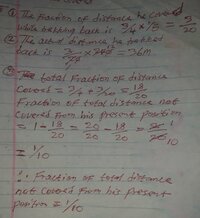 ① The fraction of distance he covered
while walking back is 3/4 × 1/5 = 3/20
② The actual distance he walked
back is 3/20 × 240 = 36m
③ total fraction of distance
covered = 3/4 + 3/20 = 18/20
Fraction of total distance not
covered from his present position
= 1 - 18/20 = 20/20 - 18/20 = 1/10
= 1/10
∴ Fraction of total distance
not covered from his present
position = 1/10